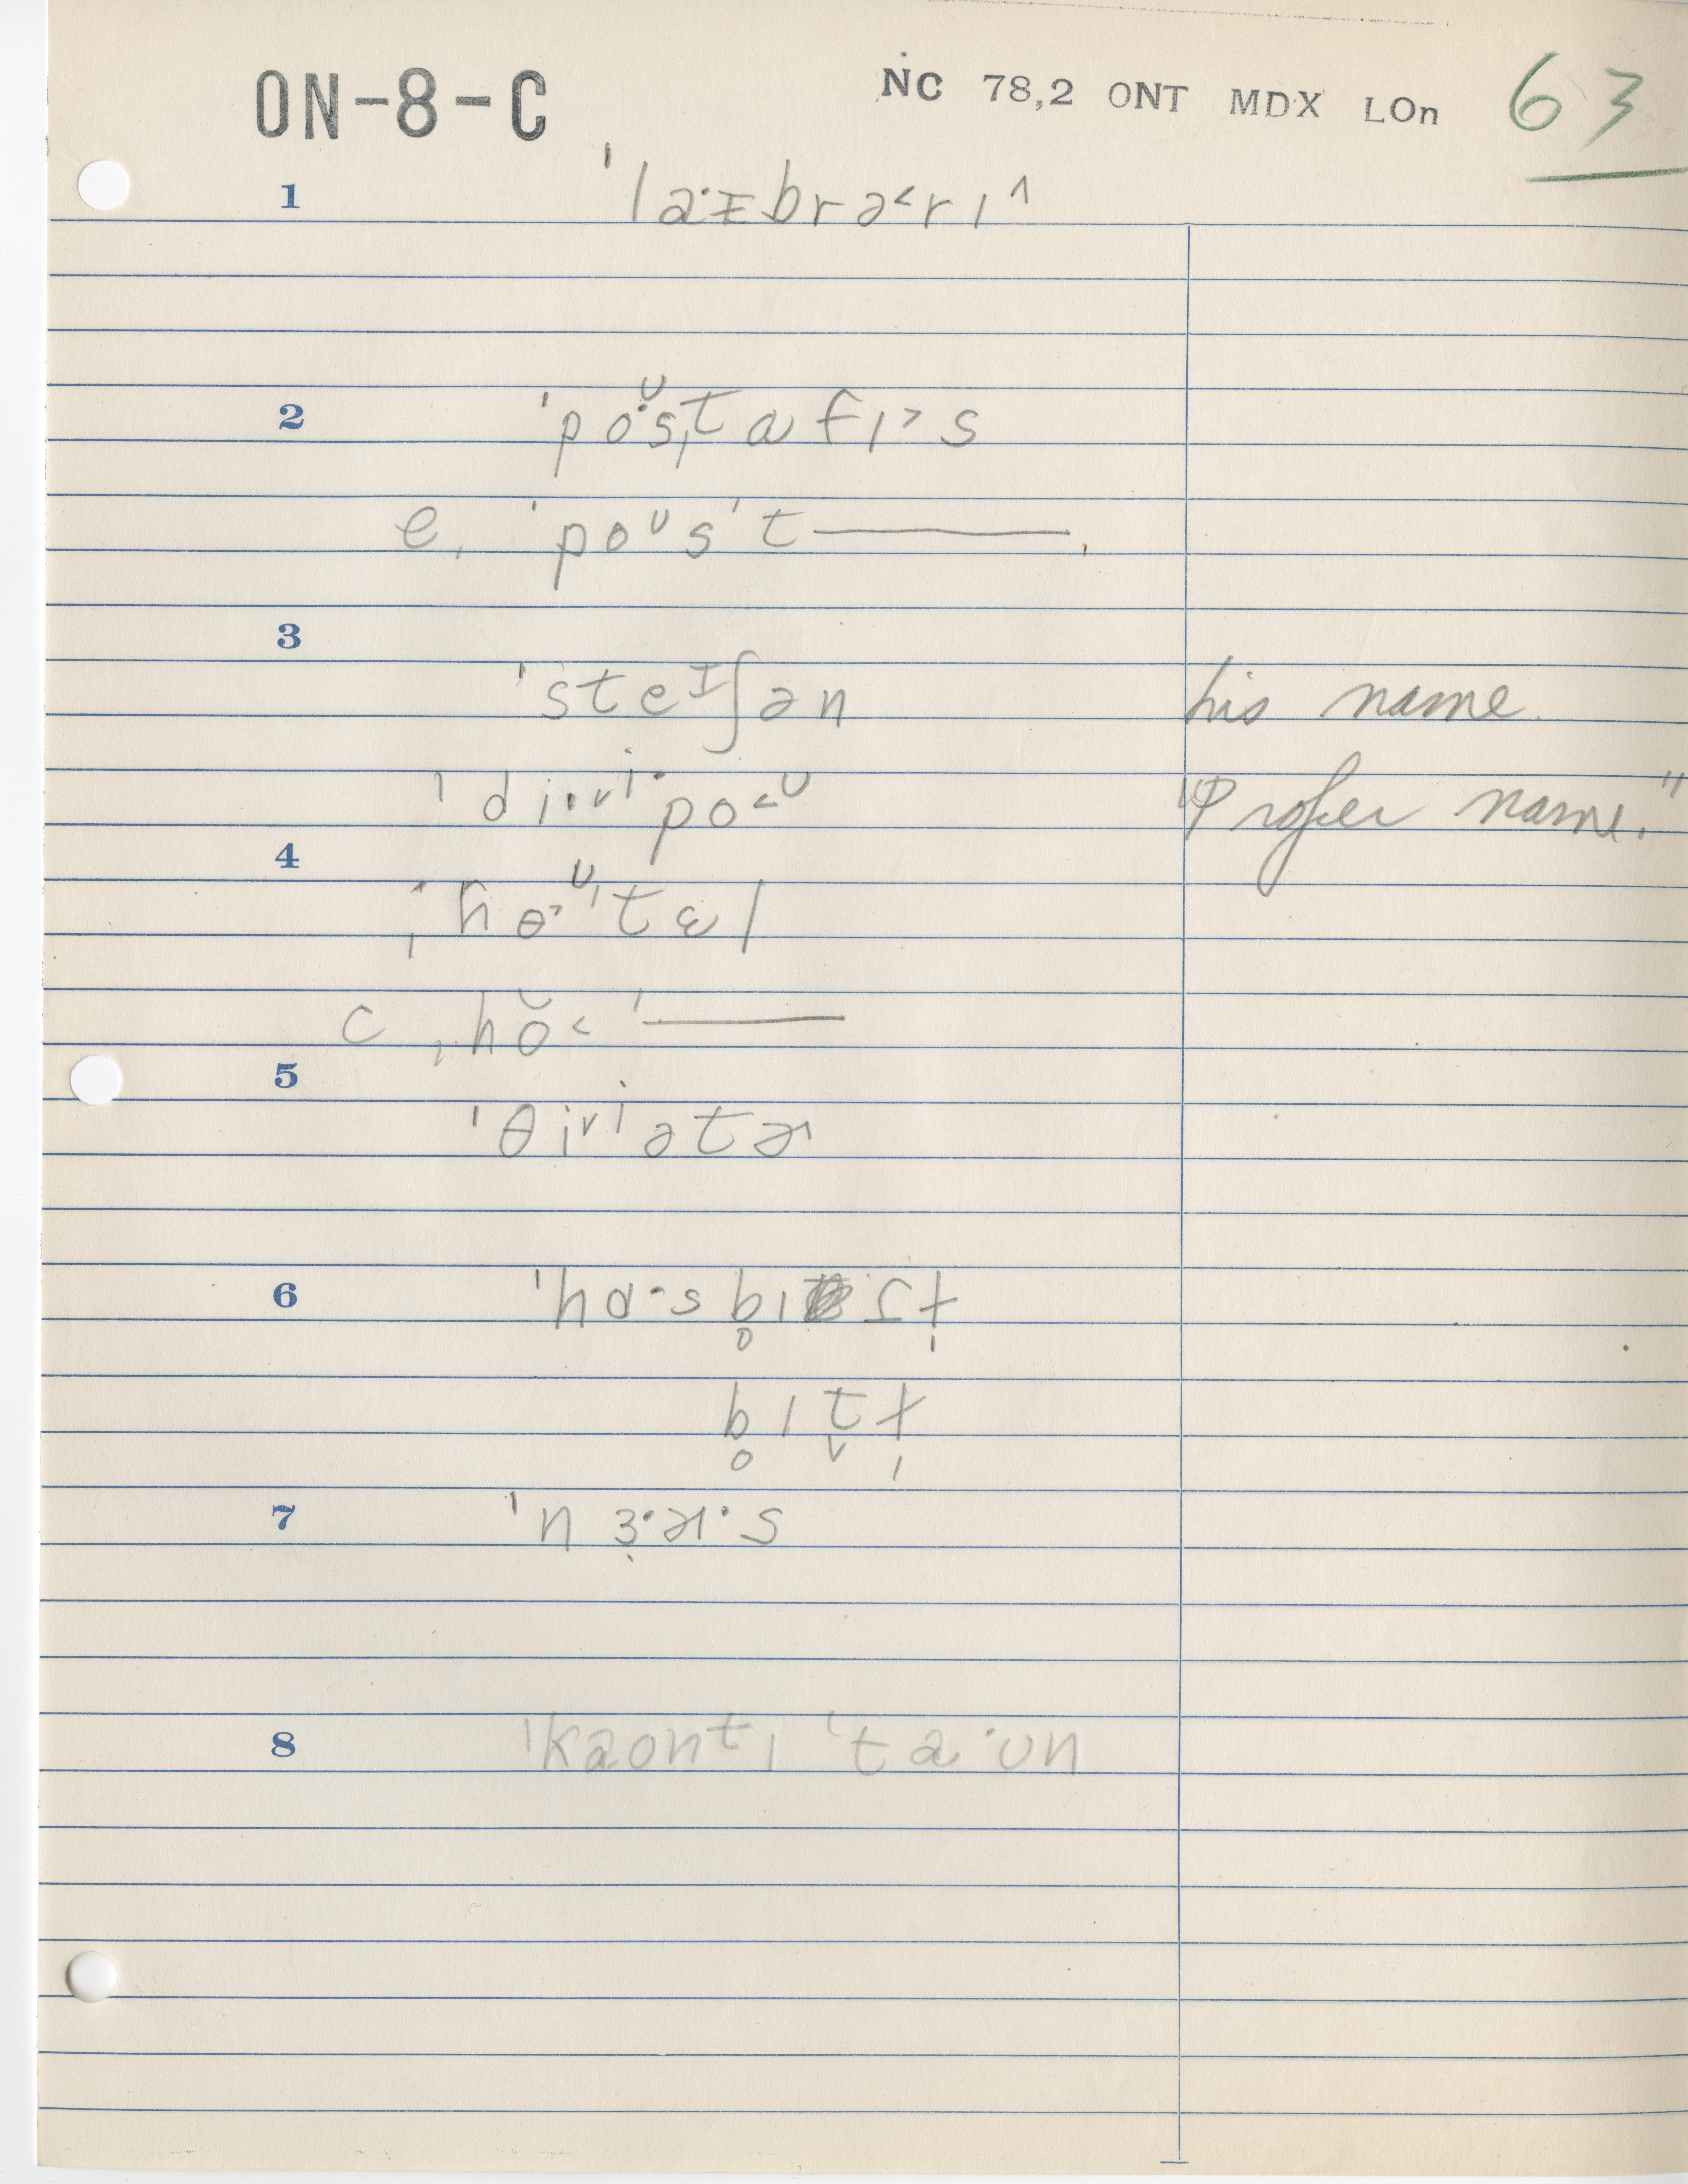 ON-8-C NC 78,2 ONT MDX LOn 63
1 ˈlaˑɪbrə˂rɪ˄
2 ˈpoˑᶷsˌtɑfɪ˃s
e. ˈpoᶷsˈt———
3
ˈsteᴵʃən his name.
ˈdiˑ˅ˈpo˂ᶷ "Proper name."
4
ˌhɵ˃ᶷˈtɛl
c ˌhŏ˂ˈ———
5
ˈθi˅ˈətɚ
6 ˈhɑˑsb̥ɪɾɫ̩
b̥ɪt̬ɫ̩
7 ˈnɜˑɚˑs
8 ˈkaontɪ ˈtaˑʊn